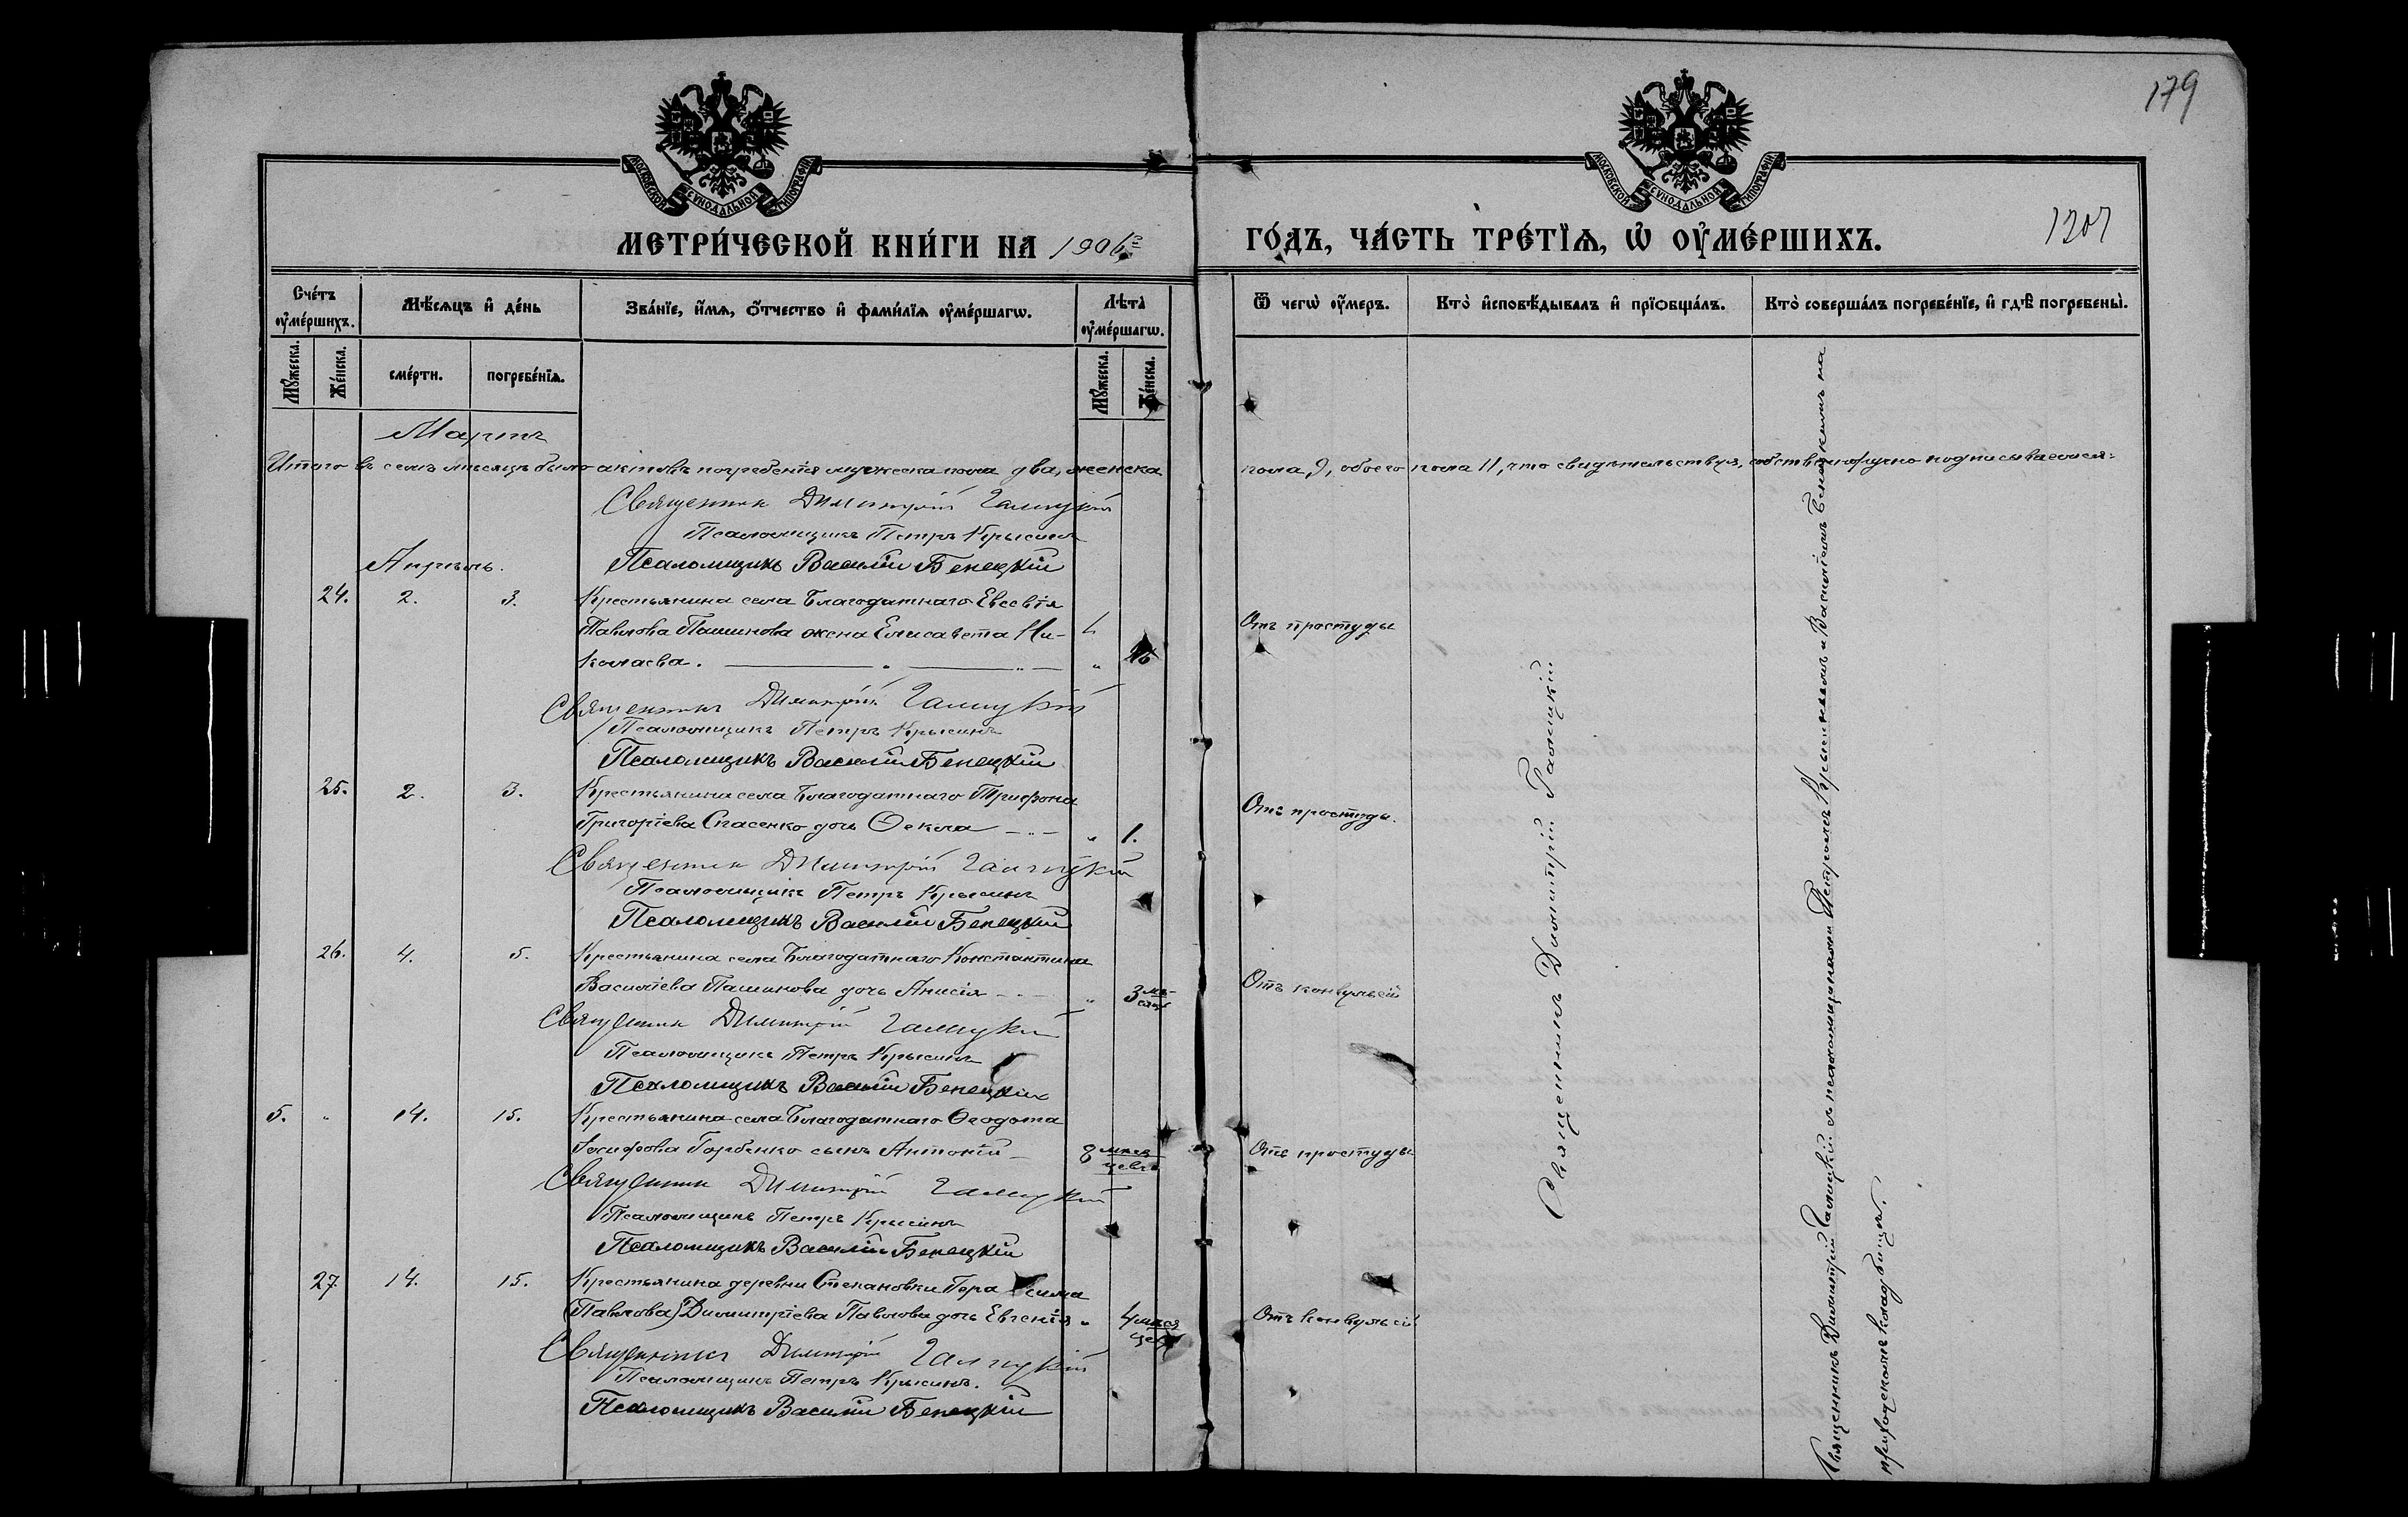 179
МОСКОВСКОЙ СѴНОДАЛЬНОЙ ТИПОГРАФІИ
МОСКОВСКОЙ СѴНОДАЛЬНОЙ ТИПОГРАФІИ
МЕТРИ́ЧЕСКОЙ КНИ́ГИ НА 1906 ГО́ДЪ, ЧА́СТЬ ТРЕ́ТЇѦ, Ѽ ОУ҆МЕ́РШИХЪ.
1207
Сче́тъ оу҆ме́ршихъ.
Мѣ́сѧцъ и҆ де́нь
Зва́нїе, и҆́мѧ, ѻ҆́тчество и҆ фами́лїѧ оу҆ме́ршагѡ.
Лѣ́та оу҆ме́ршагѡ.
Ѿ чегѡ̀ оу҆́меръ.
Кто̀ и҆сповѣ́дывалъ и҆ прїѻбща́лъ.
Кто̀ соверша́лъ погребе́нїе, и҆ гдѣ̀ погребены̀.
Мꙋ́жеска.
Же́нска.
сме́рти.
погребе́нїѧ.
Мꙋ́жеска.
Же́нска.
Мартъ
Итого въ семъ мѣсяцѣ было актовъ погребенія мужеска пола два, женска пола 9, обоего пола 11, что свидѣтельствуя, собственноручно подписываемся:
Священник Димитрій Галицкій
Псаломщикъ Петръ Крысинъ
Псаломщикъ Василій Бенецкій
Апрѣль.
24. 2. 3. Крестьянина села Благодатнаго Евсевія
Павлова Пашинова жена Елисавета Ни- Отъ простуды
колаева.
Священникъ Димитрій Галицкій
Псаломщикъ Петръ Крысинъ
Псаломщикъ Василій Бенецкій
25. 2. 3. Крестьянина села Благодатнаго Трифона
Григоріева Спасенко дочь Ѳекла „ 1. Отъ простуды.
Священник Димитрій Галицкій
Псаломщикъ Петръ Крысинъ
Псаломщикъ Василій Бенецкій
26. 4. 5. Крестьянина села Благодатнаго Константина
Василіева Пашинова дочь Анисія „ 3 мѣ-сяц Отъ конвульсій
Священник Димитрій Галицкій
Псаломщикъ Петръ Крысинъ
Псаломщикъ Василій Бенецкій
5. „ 14. 15. Крестьянина села Благодатнаго Ѳеодота
Іосифова Горбенко сынъ Антоній 8 мѣсяцевъ Отъ простуды
Священник Димитрій Галицкій
Псаломщикъ Петръ Крысинъ
Псаломщикъ Василій Бенецкій
27. 14. 15. Крестьянина деревни Степановки
(Павлова) Димитріева Павлова дочь Евгенія „ 4 мѣсяцев Отъ конвульсій
Священникъ Димитрій Галицкій
Псаломщикъ Петръ Крысинъ.
Псаломщикъ Василій Бенецкій
Священникъ Димитрій Галицкій
Священникъ Димитрій Галицкій съ псаломщиками Петромъ Крысинымъ и Василіемъ Бенецкимъ на
приходскомъ кладбищѣ.